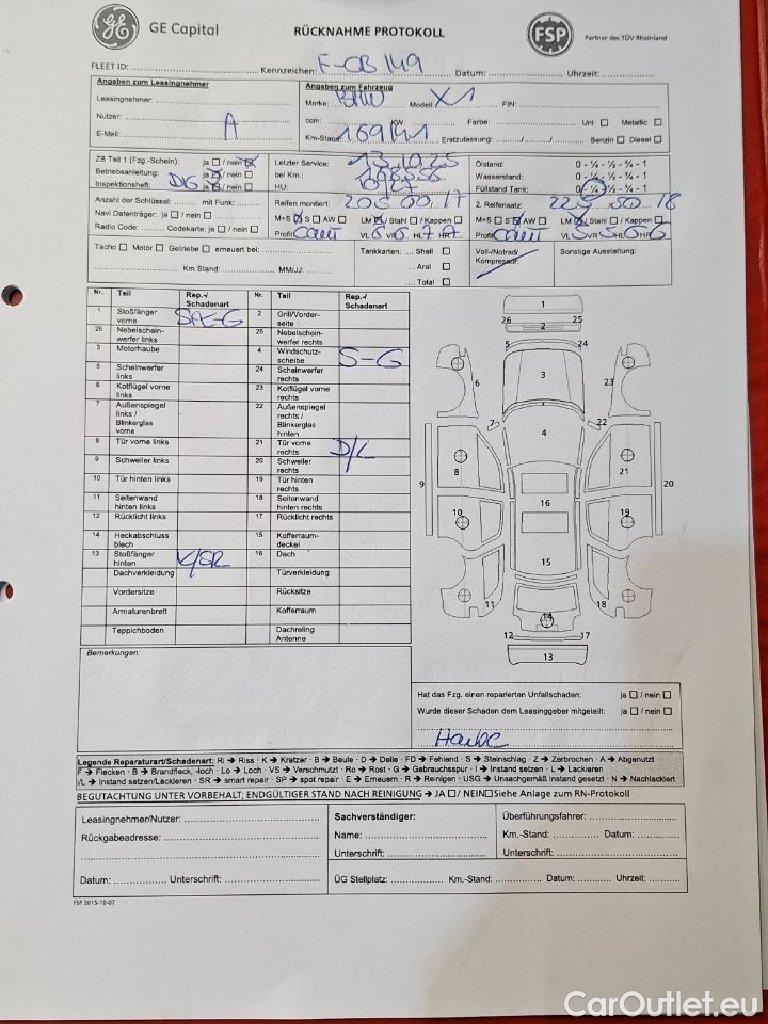 GE Capital
RÜCKNAHME PROTOKOLL
FSP
Partner des TÜV Rheinland
FLEET ID: Kennzeichen: F-CB 149 Datum: Uhrzeit:
Angaben zum Leasingnehmer
Leasingnehmer:
Nutzer: A
E-Mail:
Angaben zum Fahrzeug
Marke: BMW Modell: X1 FIN:
ccm: KW: Farbe: Uni Metallic
Km-Stand: Erstzulassung: Benzin Diesel
ZB Teil 1 (Fzg.-Schein): ja / nein
Betriebsanleitung: ja / nein
Inspektionsheft: DIG ja / nein
Letzter Service: 13.10.25
bei Km.:
HU: 10/27
Ölstand: 0 - ¼ - ½ - ¾ - 1
Wasserstand: 0 - ¼ - ½ - ¾ - 1
Füllstand Tank: 0 - ¼ - ½ - ¾ - 1
Anzahl der Schlüssel: mit Funk:
Navi Datenträger: ja / nein
Radio Code: Codekarte: ja / nein
Reifen montiert: 17
M+S S AW LM / Stahl / Kappen
Profil: Conti VL 6 VR 6 HL 7 HR 7
2. Reifensatz: 225 50 18
M+S S AW LM / Stahl / Kappen
Profil: Conti VL VR HL HR 6
Tacho Motor Getriebe erneuert bei:
Km Stand: MM/JJ:
Tankkarten: Shell
Aral
Total
Voll-/Notrad/
Kompressor
Sonstige Ausstattung:
Nr. Teil Rep.-/ Schadenart Nr. Teil Rep.-/ Schadenart
1 Stoßfänger vorne 2 Grill/Vorderseite
26 Nebelscheinwerfer links 25 Nebelscheinwerfer rechts
3 Motorhaube 4 Windschutzscheibe S-G
5 Scheinwerfer links 24 Scheinwerfer rechts
6 Kotflügel vorne links 23 Kotflügel vorne rechts
7 Außenspiegel links / Blinkerglas vorne 22 Außenspiegel rechts / Blinkerglas hinten
8 Tür vorne links 21 Tür vorne rechts D/L
9 Schweller links 20 Schweller rechts
10 Tür hinten links 19 Tür hinten rechts
11 Seitenwand hinten links 18 Seitenwand hinten rechts
12 Rücklicht links 17 Rücklicht rechts
14 Heckabschlussblech 15 Kofferraumdeckel
13 Stoßfänger hinten K/SR 16 Dach
Dachverkleidung Türverkleidung
Vordersitze Rücksitze
Armaturenbrett Kofferraum
Teppichboden Dachreling Antenne
1
26 2 25
5 24
6 3 23
7 22
4
8 21
9 20
10 16 19
15
11 14 18
12 17
13
Bemerkungen:
Hat das Fzg. einen reparierten Unfallschaden: ja / nein
Wurde dieser Schaden dem Leasinggeber mitgeteilt: ja / nein
Legende Reparaturart/Schadenart: Ri → Riss · K → Kratzer · B → Beule · D → Delle · FD → Fehlend · S → Steinschlag · Z → Zerbrochen · A → Abgenutzt
F → Flecken · B → Brandfleck, -loch · Lo → Loch · VS → Verschmutzt · Ro → Rost · G → Gebrauchsspur · I → Instand setzen · L → Lackieren
I/L → Instand setzen/Lackieren · SR → smart repair · SP → spot repair · E → Erneuern · R → Reinigen · USG → Unsachgemäß instand gesetzt · N → Nachlackiert
BEGUTACHTUNG UNTER VORBEHALT; ENDGÜLTIGER STAND NACH REINIGUNG → JA / NEIN Siehe Anlage zum RN-Protokoll
Leasingnehmer/Nutzer:
Rückgabeadresse:
Datum: Unterschrift:
Sachverständiger:
Name:
Unterschrift:
Überführungsfahrer:
Km.-Stand: Datum:
Unterschrift:
ÜG Stellplatz: Km.-Stand: Datum: Uhrzeit:
FSP 2015-10-07
CarOutlet.eu